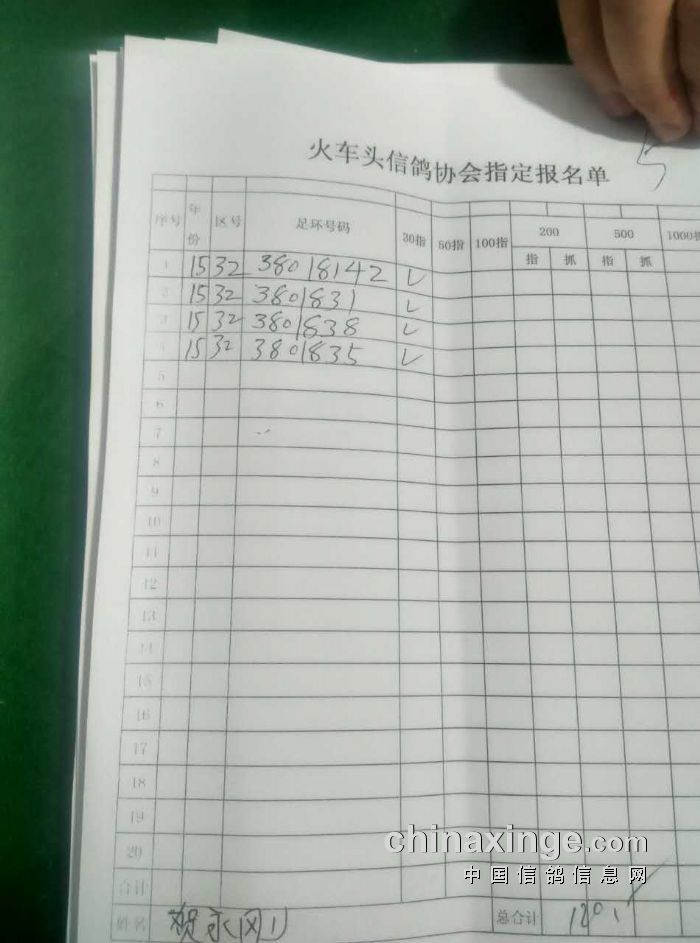 5
火车头信鸽协会指定报名单
序号 年份 区号 足环号码 30指 50指 100指 200 500 1000指
指 抓 指 抓
1 15 32 38018142 √
2 15 32 3801831 √
3 15 32 3801838 √
4 15 32 3801835 √
5
6
7
8
9
10
11
12
13
14
15
16
17
18
19
20
合计
姓名 贺永刚 总合计 120
chinaxinge.com
中国信鸽信息网